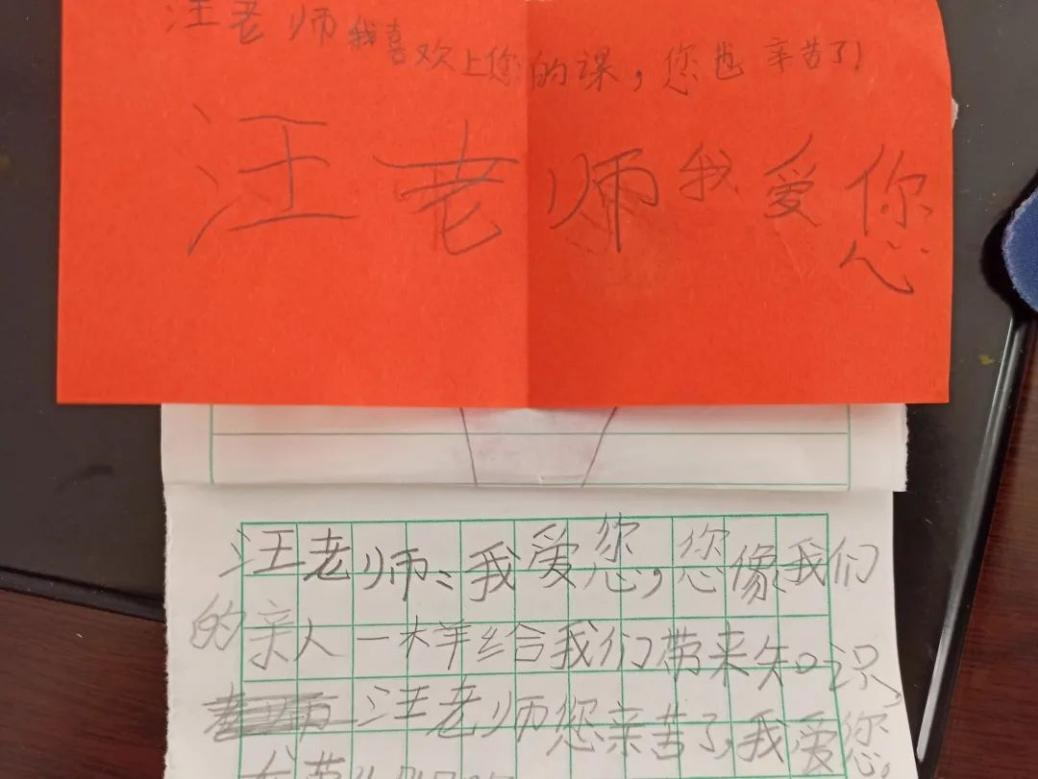 汪老师我喜欢上您的课，您也辛苦了！
汪老师我爱您
汪老师：我爱您，您像我们
的亲人一样给我们带来知识，
汪老师您亲苦了，我爱您。